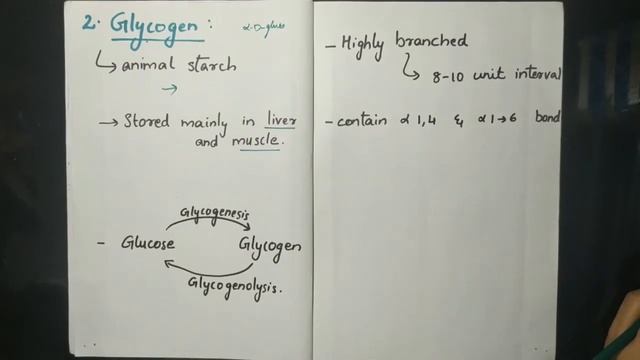 2. Glycogen :
α-D-gluco
↳ animal starch
→
→ Stored mainly in liver
and muscle.
Glycogenesis
- Glucose Glycogen
Glycogenolysis.
- Highly branched
↳ 8-10 unit interval
- contain α 1,4 & α 1→6 bond